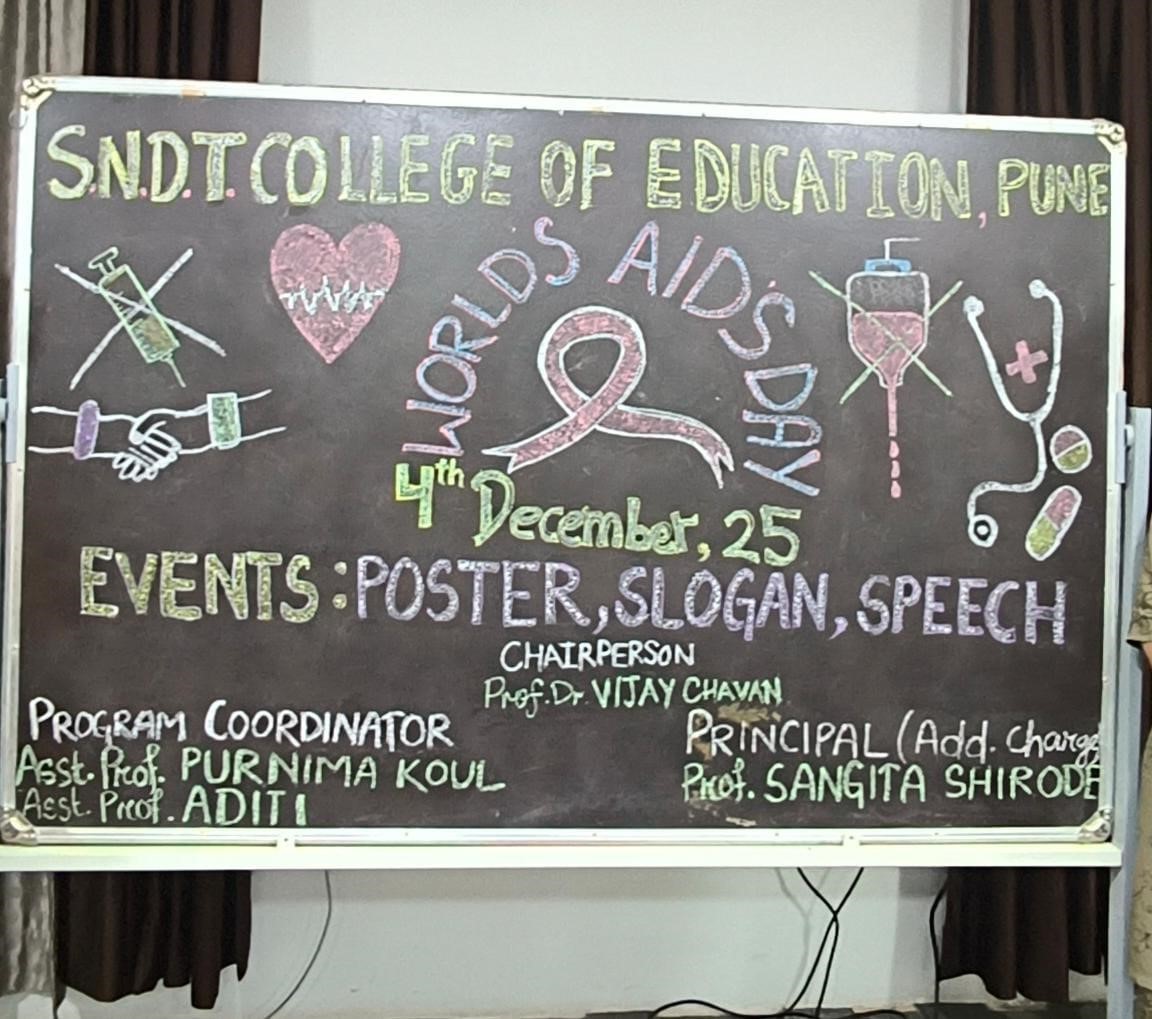 S.N.D.T. COLLEGE OF EDUCATION, PUNE
WORLDS AID'S DAY
4th December, 25
EVENTS : POSTER, SLOGAN, SPEECH
CHAIRPERSON
Prof. Dr. VIJAY CHAVAN
PROGRAM COORDINATOR
Asst. Prof. PURNIMA KOUL
Asst. Prof. ADITI
PRINCIPAL (Add. charge)
Prof. SANGITA SHIRODE